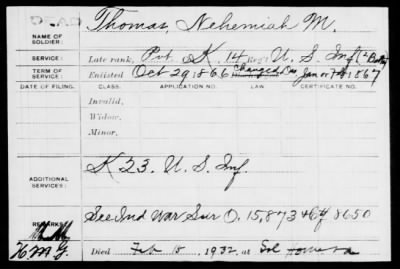 DEAD
NAME OF SOLDIER: Thomas, Nehemiah M.
SERVICE: Late rank, Pvt K, 14 Reg't U. S. Inf (2" Batty
TERM OF SERVICE: Enlisted Oct 29, 1866 Changed Jan 1867
DATE OF FILING. CLASS. APPLICATION NO. LAW CERTIFICATE NO.
Invalid,
Widow,
Minor,
ADDITIONAL SERVICES: K 23. U. S. Inf.
REMARKS: See Ind War Sur O. 15,873 8650
Died Feb 18, 1932, at Sol